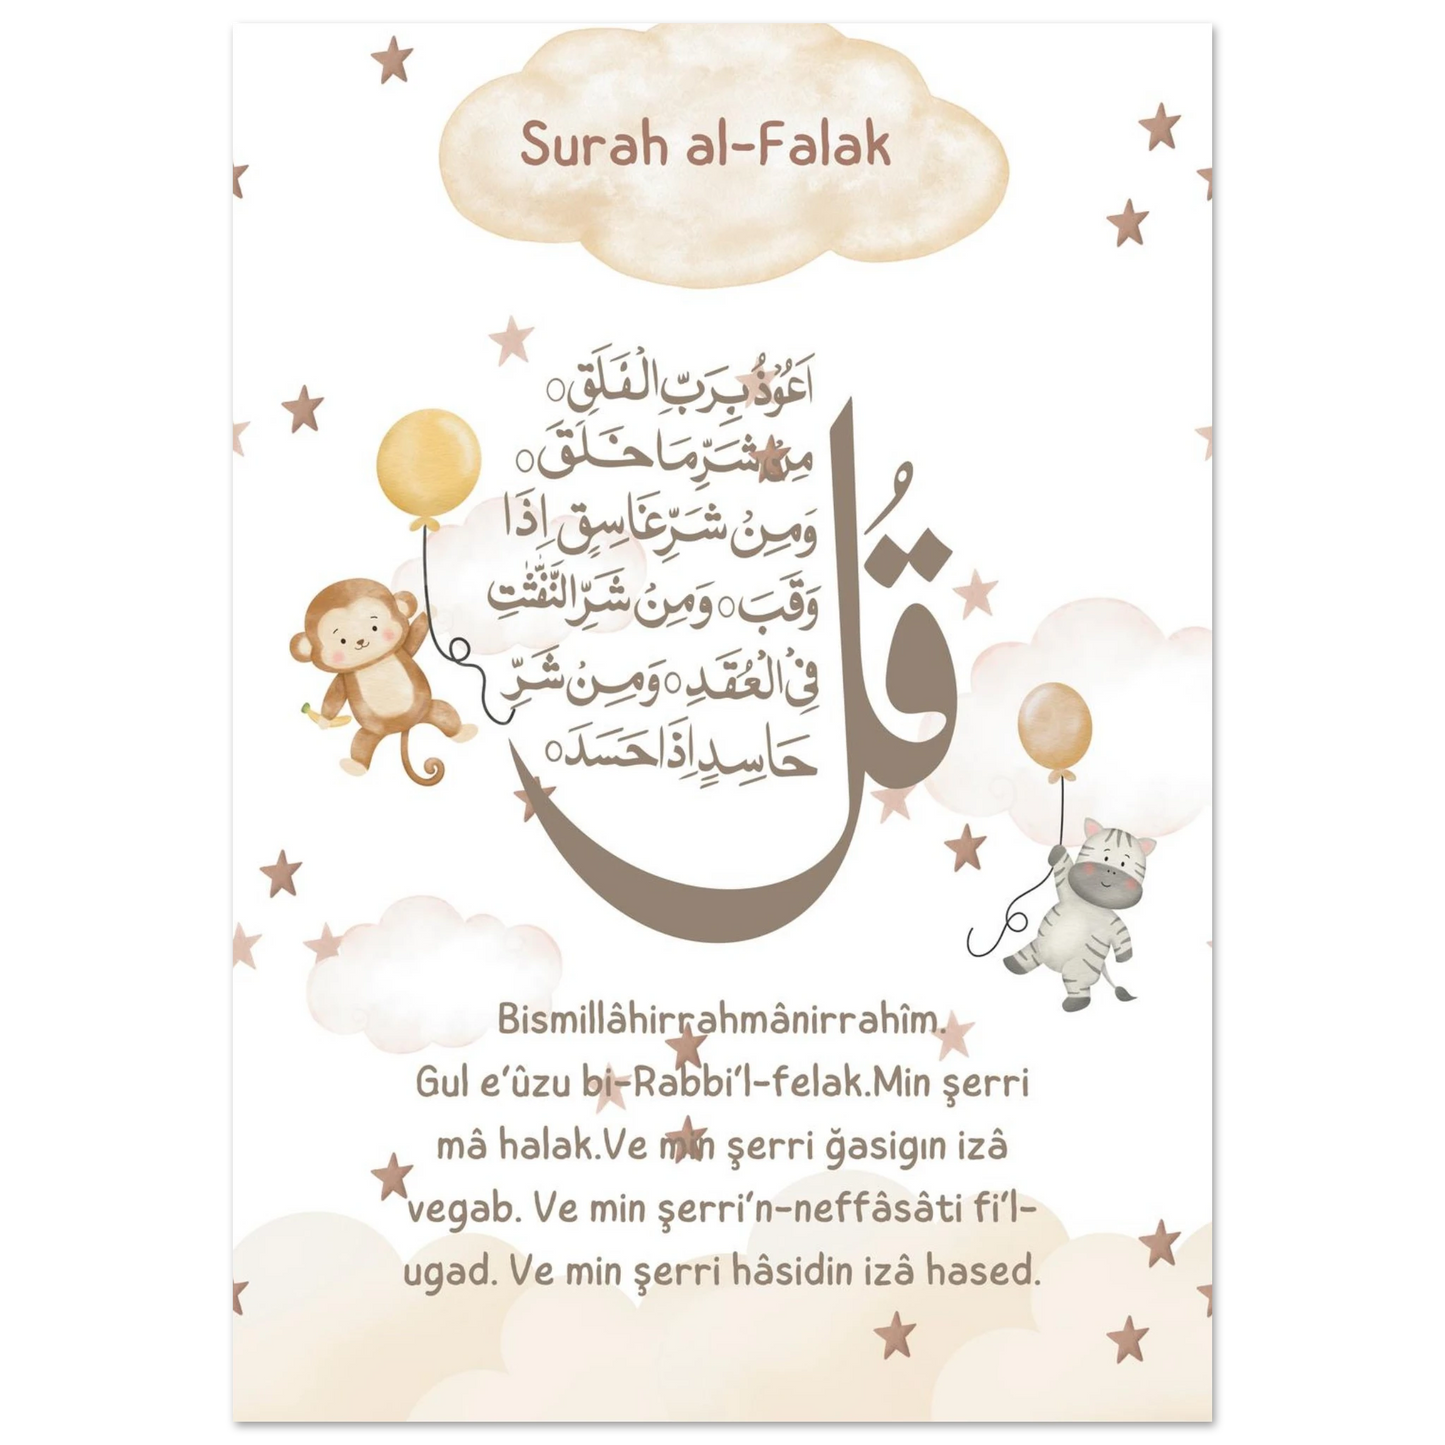 Surah al-Falak
قُل
اَعُوْذُ بِرَبِّ الْفَلَقِ
مِنْ شَرِّ مَا خَلَقَ
وَمِنْ شَرِّ غَاسِقٍ اِذَا
وَقَبَ وَمِنْ شَرِّ النَّفّٰثٰتِ
فِی الْعُقَدِ وَمِنْ شَرِّ
حَاسِدٍ اِذَا حَسَدَ
Bismillâhirrahmânirrahîm.
Gul e'ûzu bi-Rabbi'l-felak.Min şerri
mâ halak.Ve min şerri ğasigın izâ
vegab. Ve min şerri'n-neffâsâti fi'l-
ugad. Ve min şerri hâsidin izâ hased.